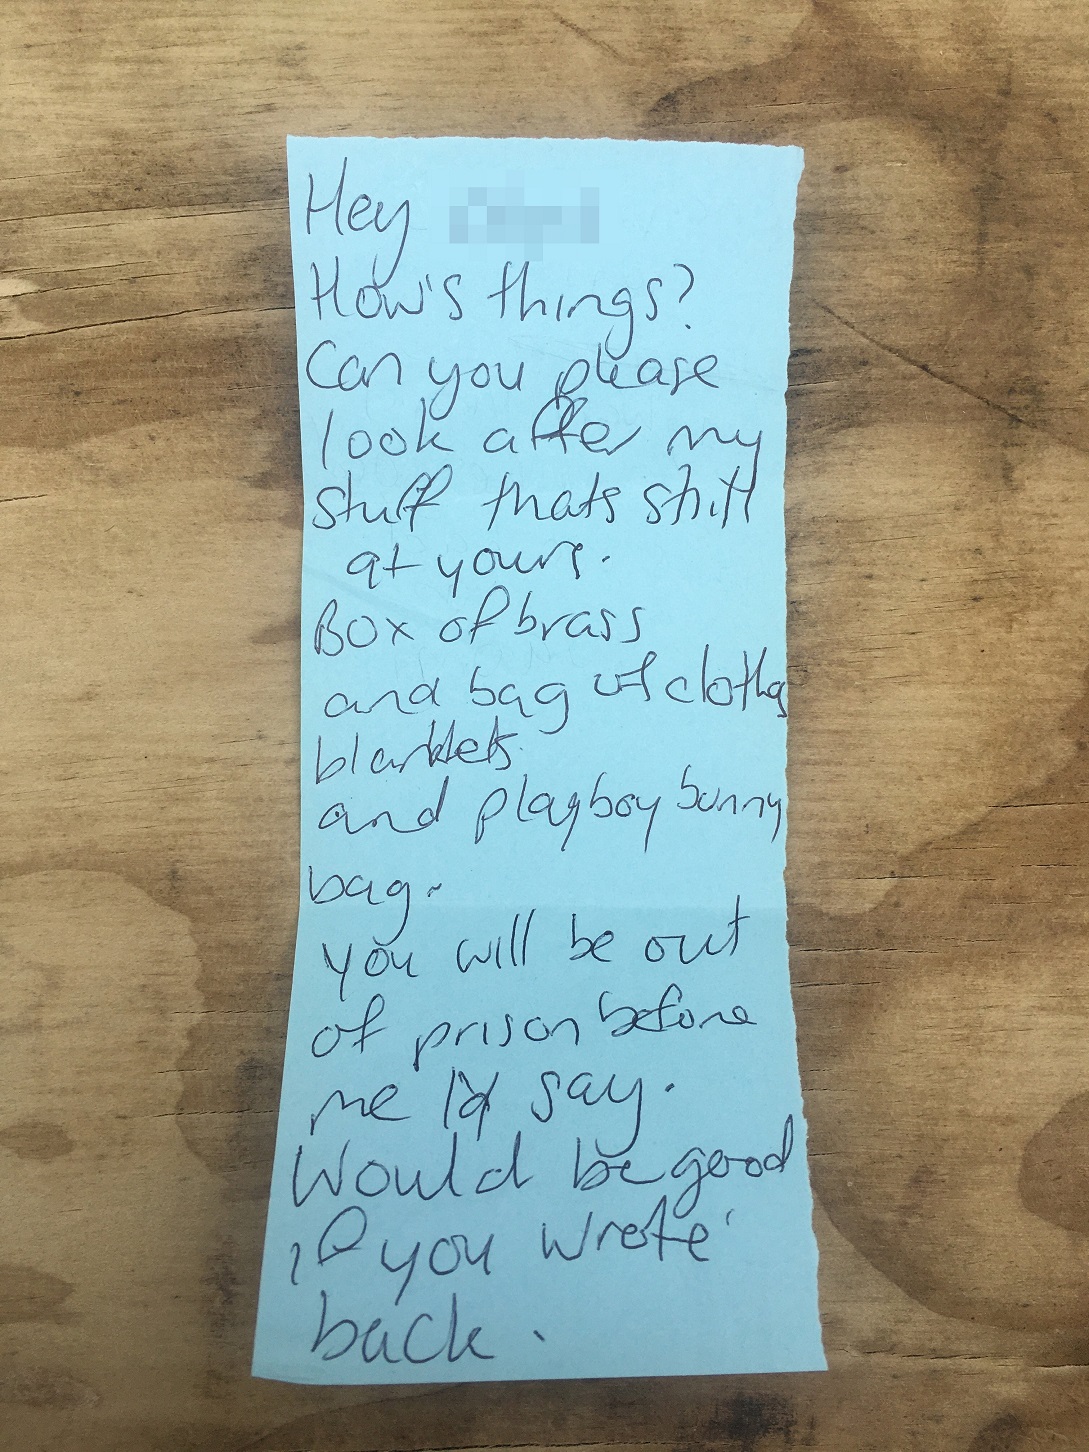 Hey
How's things?
Can you please
look after my
stuff thats still
at yours.
Box of brass
and bag of clothes
blankets
and playboy bunny
bag.
you will be out
of prison before
me I'd say.
Would be good
if you wrote
back.